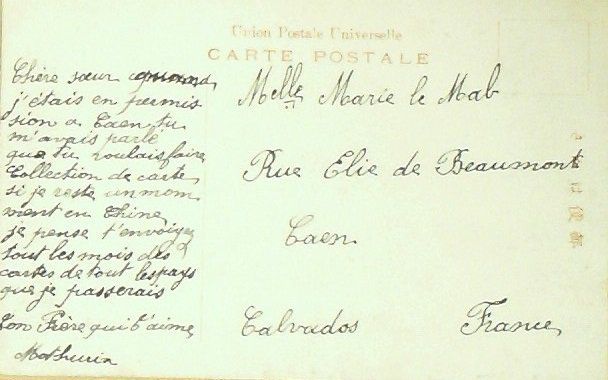 Union Postale Universelle
CARTE POSTALE
Chère sœur quand
j'étais en permis
sion a Caen tu
m'avais parlé
que tu voulais faire
Collection de carte
si je reste un mom
ment en Chine
je pense t'envoiyer
tout les mois des
cartes de tout les pays
que je passerais
Ton Frère qui t'aime
Mathurin
Melle Marie le Mab
Rue Elie de Beaumont
Caen
Calvados France